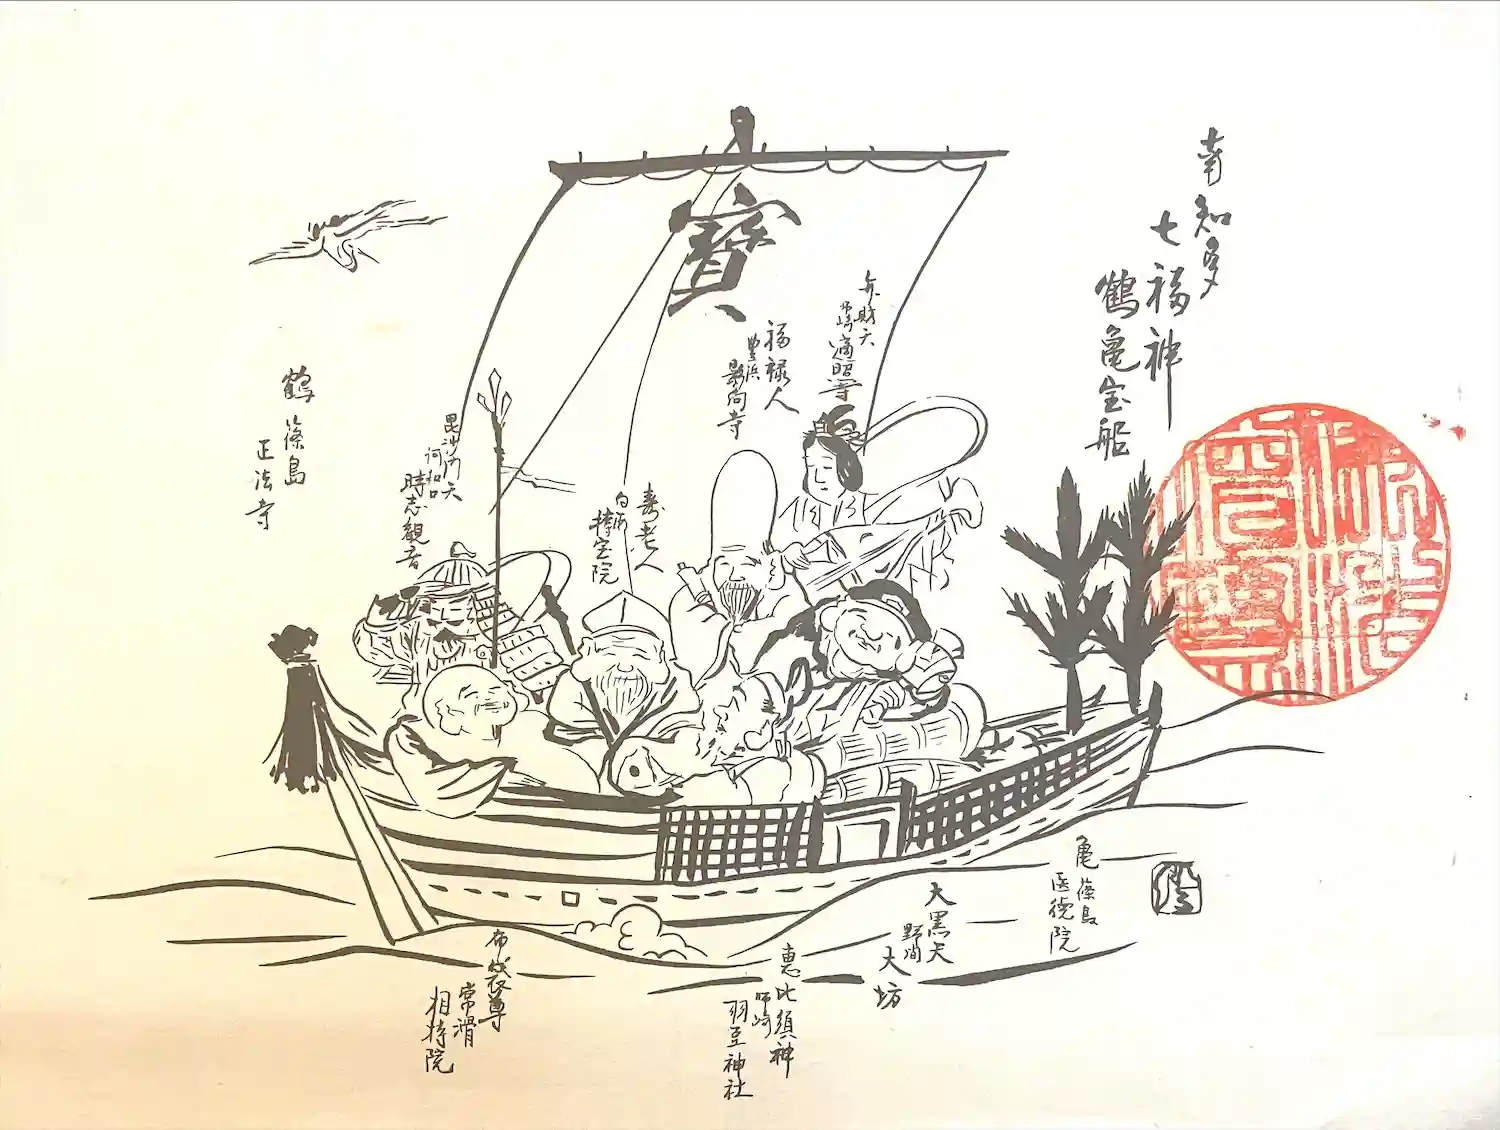 南知多
七福神
鶴亀宝船
寶
弁財天
師崎
遍照寺
福禄人
豊浜
影向寺
寿老人
白
持宝院
毘沙門天
河和口
時志観音
鶴
篠島
正法寺
亀
篠島
医徳院
大黒天
野間
大坊
恵比須神
師崎
羽豆神社
布袋尊
常滑
相持院